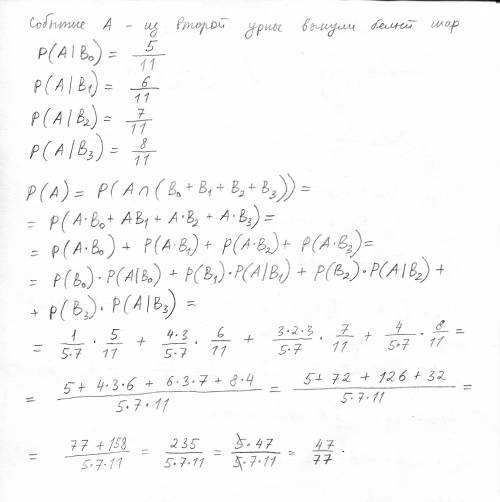 Событие А - из второй урны вынули белый шар
P(A|B₀) = 5/11
P(A|B₁) = 6/11
P(A|B₂) = 7/11
P(A|B₃) = 8/11
P(A) = P(A∩(B₀+B₁+B₂+B₃)) =
= P(A·B₀ + AB₁ + A·B₂ + A·B₃) =
= P(A·B₀) + P(A·B₁) + P(A·B₂) + P(A·B₃) =
= P(B₀)·P(A|B₀) + P(B₁)·P(A|B₁) + P(B₂)·P(A|B₂) +
+ P(B₃)·P(A|B₃) =
= 1/5·7 · 5/11 + 4·3/5·7 · 6/11 + 3·2·3/5·7 · 7/11 + 4/5·7 · 8/11 =
= 5+4·3·6+6·3·7+8·4/5·7·11 = 5+72+126+32/5·7·11 =
= 77+158/5·7·11 = 235/5·7·11 = 5·47/5·7·11 = 47/77.